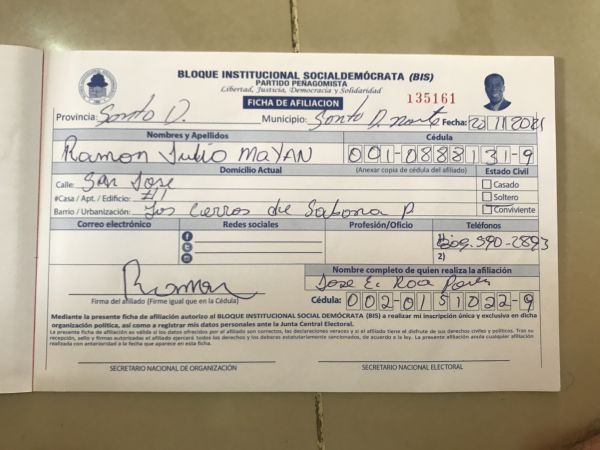 BLOQUE INSTITUCIONAL SOCIALDEMÓCRATA (BIS)
PARTIDO PEÑAGOMISTA
Libertad, Justicia, Democracia y Solidaridad
FICHA DE AFILIACION
135161
Provincia: Santo D. Municipio: Santo D. norte Fecha: 20/11/2021
Nombres y Apellidos Cédula
Ramon Julio MaYAN 001-0888131-9
Domicilio Actual (Anexar copia de cédula del afiliado) Estado Civil
Calle: San Jose Casado
#Casa / Apt. / Edificio: #1 Soltero
Barrio / Urbanización: Los cerros de Sabana P. Conviviente
Correo electrónico Redes sociales Profesión/Oficio Teléfonos
1) 809-590-2893
2)
Nombre completo de quien realiza la afiliación
Ramon Jose E. Roa
Firma del afiliado (Firme igual que en la Cédula) Cédula: 002-0151022-9
Mediante la presente ficha de afiliación autorizo al BLOQUE INSTITUCIONAL SOCIAL DEMÓCRATA (BIS) a realizar mi inscripción única y exclusiva en dicha
organización política, así como a registrar mis datos personales ante la Junta Central Electoral.
La presente ficha de afiliación es válida si los datos ofrecidos por el afiliado son correctos, las declaraciones veraces y si el afiliado tiene el disfrute de sus derechos civiles y políticos. Tras su
recepción, sello y firmas autorizadas el afiliado ejercerá todos los derechos y los deberes estatutariamente sancionados, de acuerdo a la ley. La presente afiliación anula cualquier afiliación
realizada con anterioridad a la fecha que aparece en esta ficha.
SECRETARIO NACIONAL DE ORGANIZACIÓN SECRETARIO NACIONAL ELECTORAL